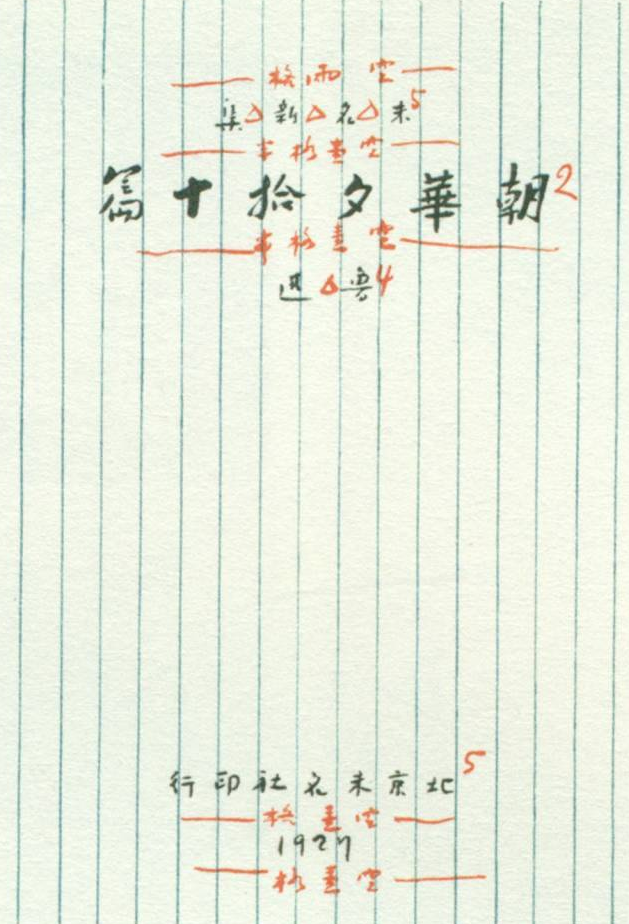 空兩格
未△名△新△集5
空壹格半
朝華夕拾十篇2
空壹格半
魯△迅4
北京未名社印行5
空壹格
1927
空壹格